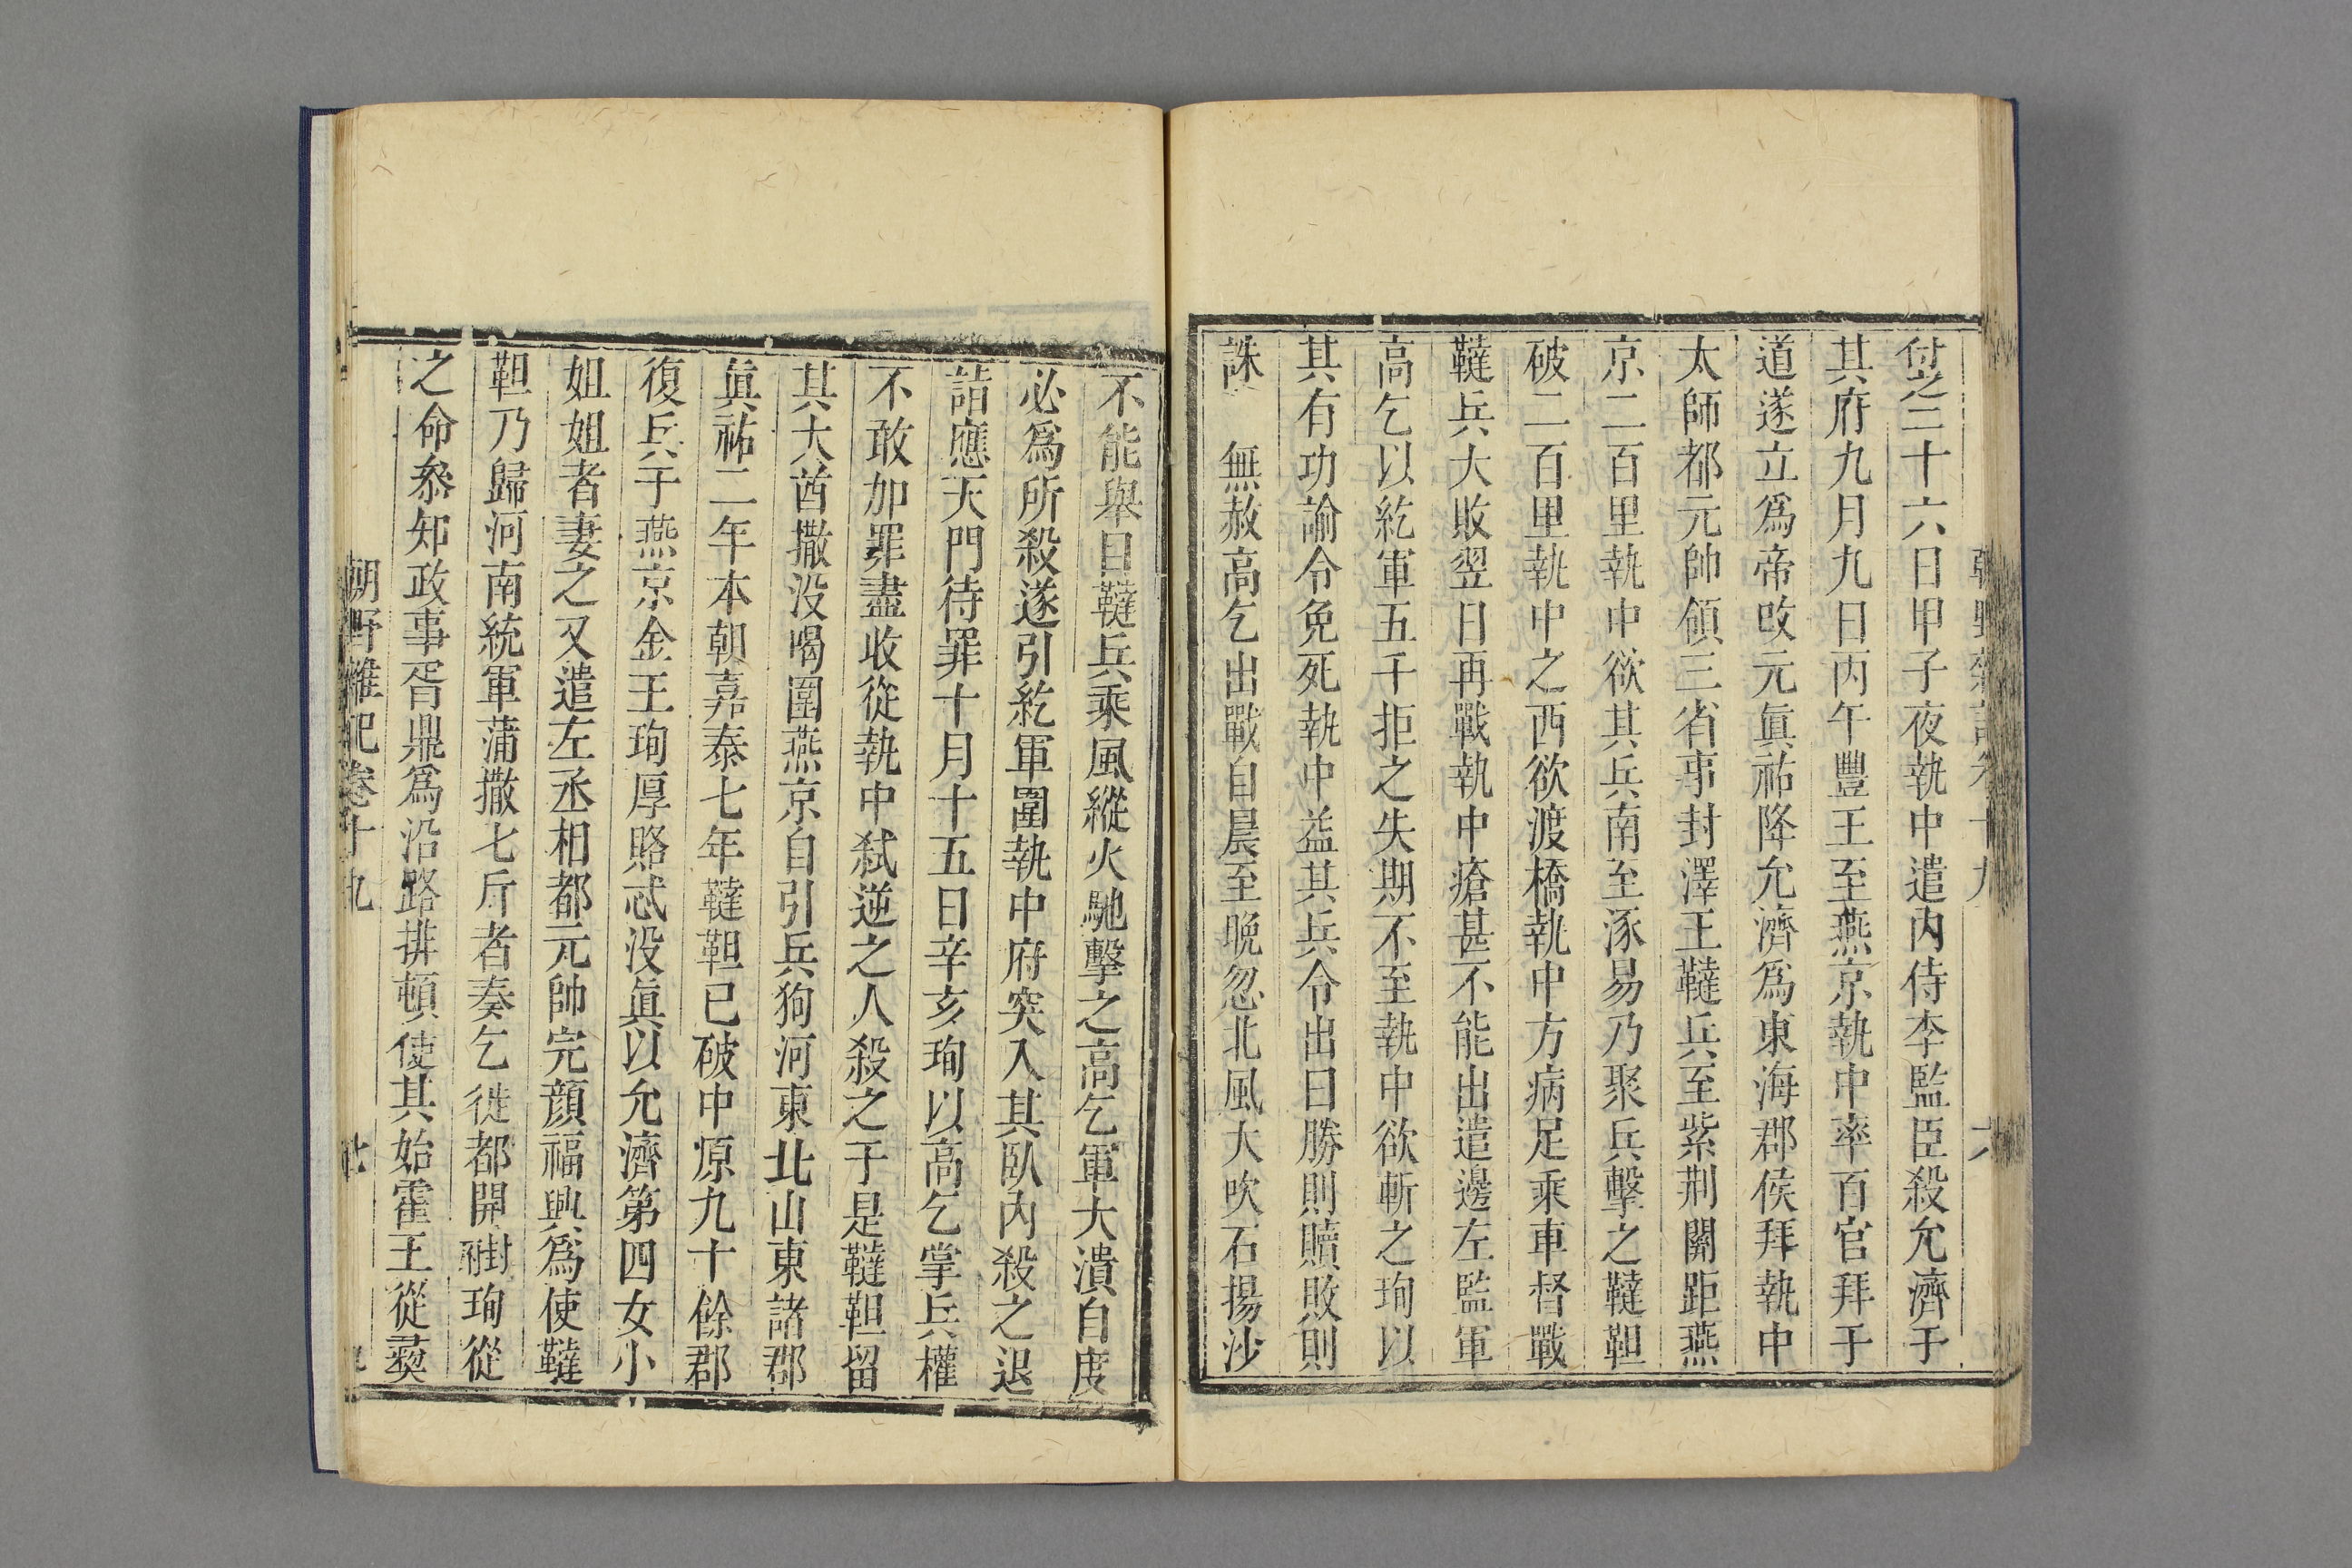 朝野雜記卷十九　六
付之三十六日甲子夜執中遣内侍李監臣殺允濟于
其府九月九日丙午豐王至燕京執中率百官拜于
道遂立爲帝攺元眞祐降允濟爲東海郡侯拜執中
太師都元帥領三省事封澤王韃兵至紫荆關距燕
京二百里執中欲其兵南至涿易乃聚兵擊之韃靼
破二百里執中之西欲渡橋執中方病足乘車督戰
韃兵大敗翌日再戰執中瘡甚不能出遣邊左監軍
高乞以紇軍五千拒之失期不至執中欲斬之珣以
其有功諭令免死執中益其兵令出曰勝則贖敗則
誅　無赦高乞出戰自晨至晚忽北風大吹石揚沙
不能舉目韃兵乘風縱火馳擊之高乞軍大潰自度
必爲所殺遂引紇軍圍執中府突入其臥内殺之退
詣應天門待罪十月十五日辛亥珣以高乞掌兵權
不敢加罪盡收從執中弑逆之人殺之于是韃靼留
其大酋撒没喝圍燕京自引兵狥河東北山東諸郡
眞祐二年本朝嘉泰七年韃靼已破中原九十餘郡
復兵于燕京金王珣厚賂忒没眞以允濟第四女小
姐姐者妻之又遣左丞相都元帥完顔福興爲使韃
靼乃歸河南統軍蒲撒七斤者奏乞徙都開封珣從
之命叅知政事胥鼎爲沿路排頓使其始霍王從彛
朝野雜記卷十九　七